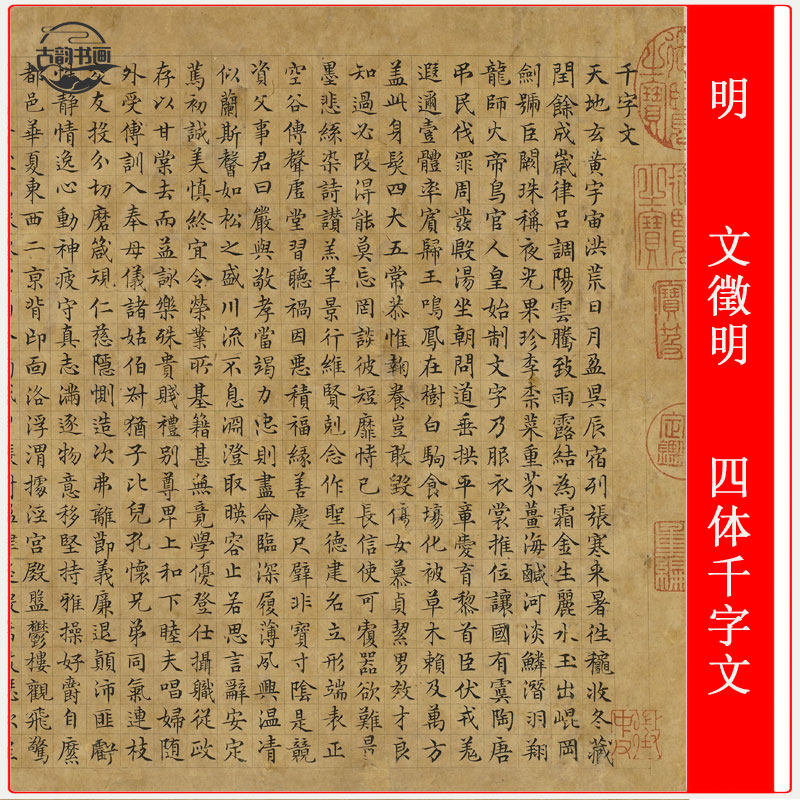 古韵书画
明 文徵明 四体千字文
千字文
天地玄黃宇宙洪荒日月盈昃辰宿列張寒来暑徃穐收冬藏
閏餘成歲律吕調陽雲騰致雨露結為霜金生麗水玉出崐岡
劍號巨闕珠稱夜光果珍李柰菜重芥薑海鹹河淡鱗潛羽翔
龍師火帝鳥官人皇始制文字乃服衣裳推位讓國有虞陶唐
弔民伐罪周發殷湯坐朝問道垂拱平章愛育黎首臣伏戎羌
遐邇壹體率賓歸王鳴鳳在樹白駒食場化被草木賴及萬方
盖此身髮四大五常恭惟鞠養豈敢毀傷女慕貞潔男效才良
知過必改得能莫忘罔談彼短靡恃己長信使可覆器欲難量
墨悲絲染詩讚羔羊景行維賢剋念作聖德建名立形端表正
空谷傳聲虛堂習聽禍因惡積福緣善慶尺璧非寶寸陰是競
資父事君曰嚴與敬孝當竭力忠則盡命臨深履薄夙興温凊
似蘭斯馨如松之盛川流不息淵澄取暎容止若思言辭安定
篤初誠美慎終宜令榮業所基籍甚無竟學優登仕攝職從政
存以甘棠去而益詠樂殊貴賤禮別尊卑上和下睦夫唱婦随
外受傅訓入奉母儀諸姑伯叔猶子比兒孔懷兄弟同氣連枝
交友投分切磨箴規仁慈隱惻造次弗離節義廉退顛沛匪虧
性静情逸心動神疲守真志滿逐物意移堅持雅操好爵自縻
都邑華夏東西二京背邙面洛浮渭據涇宮殿盤鬱樓觀飛驚